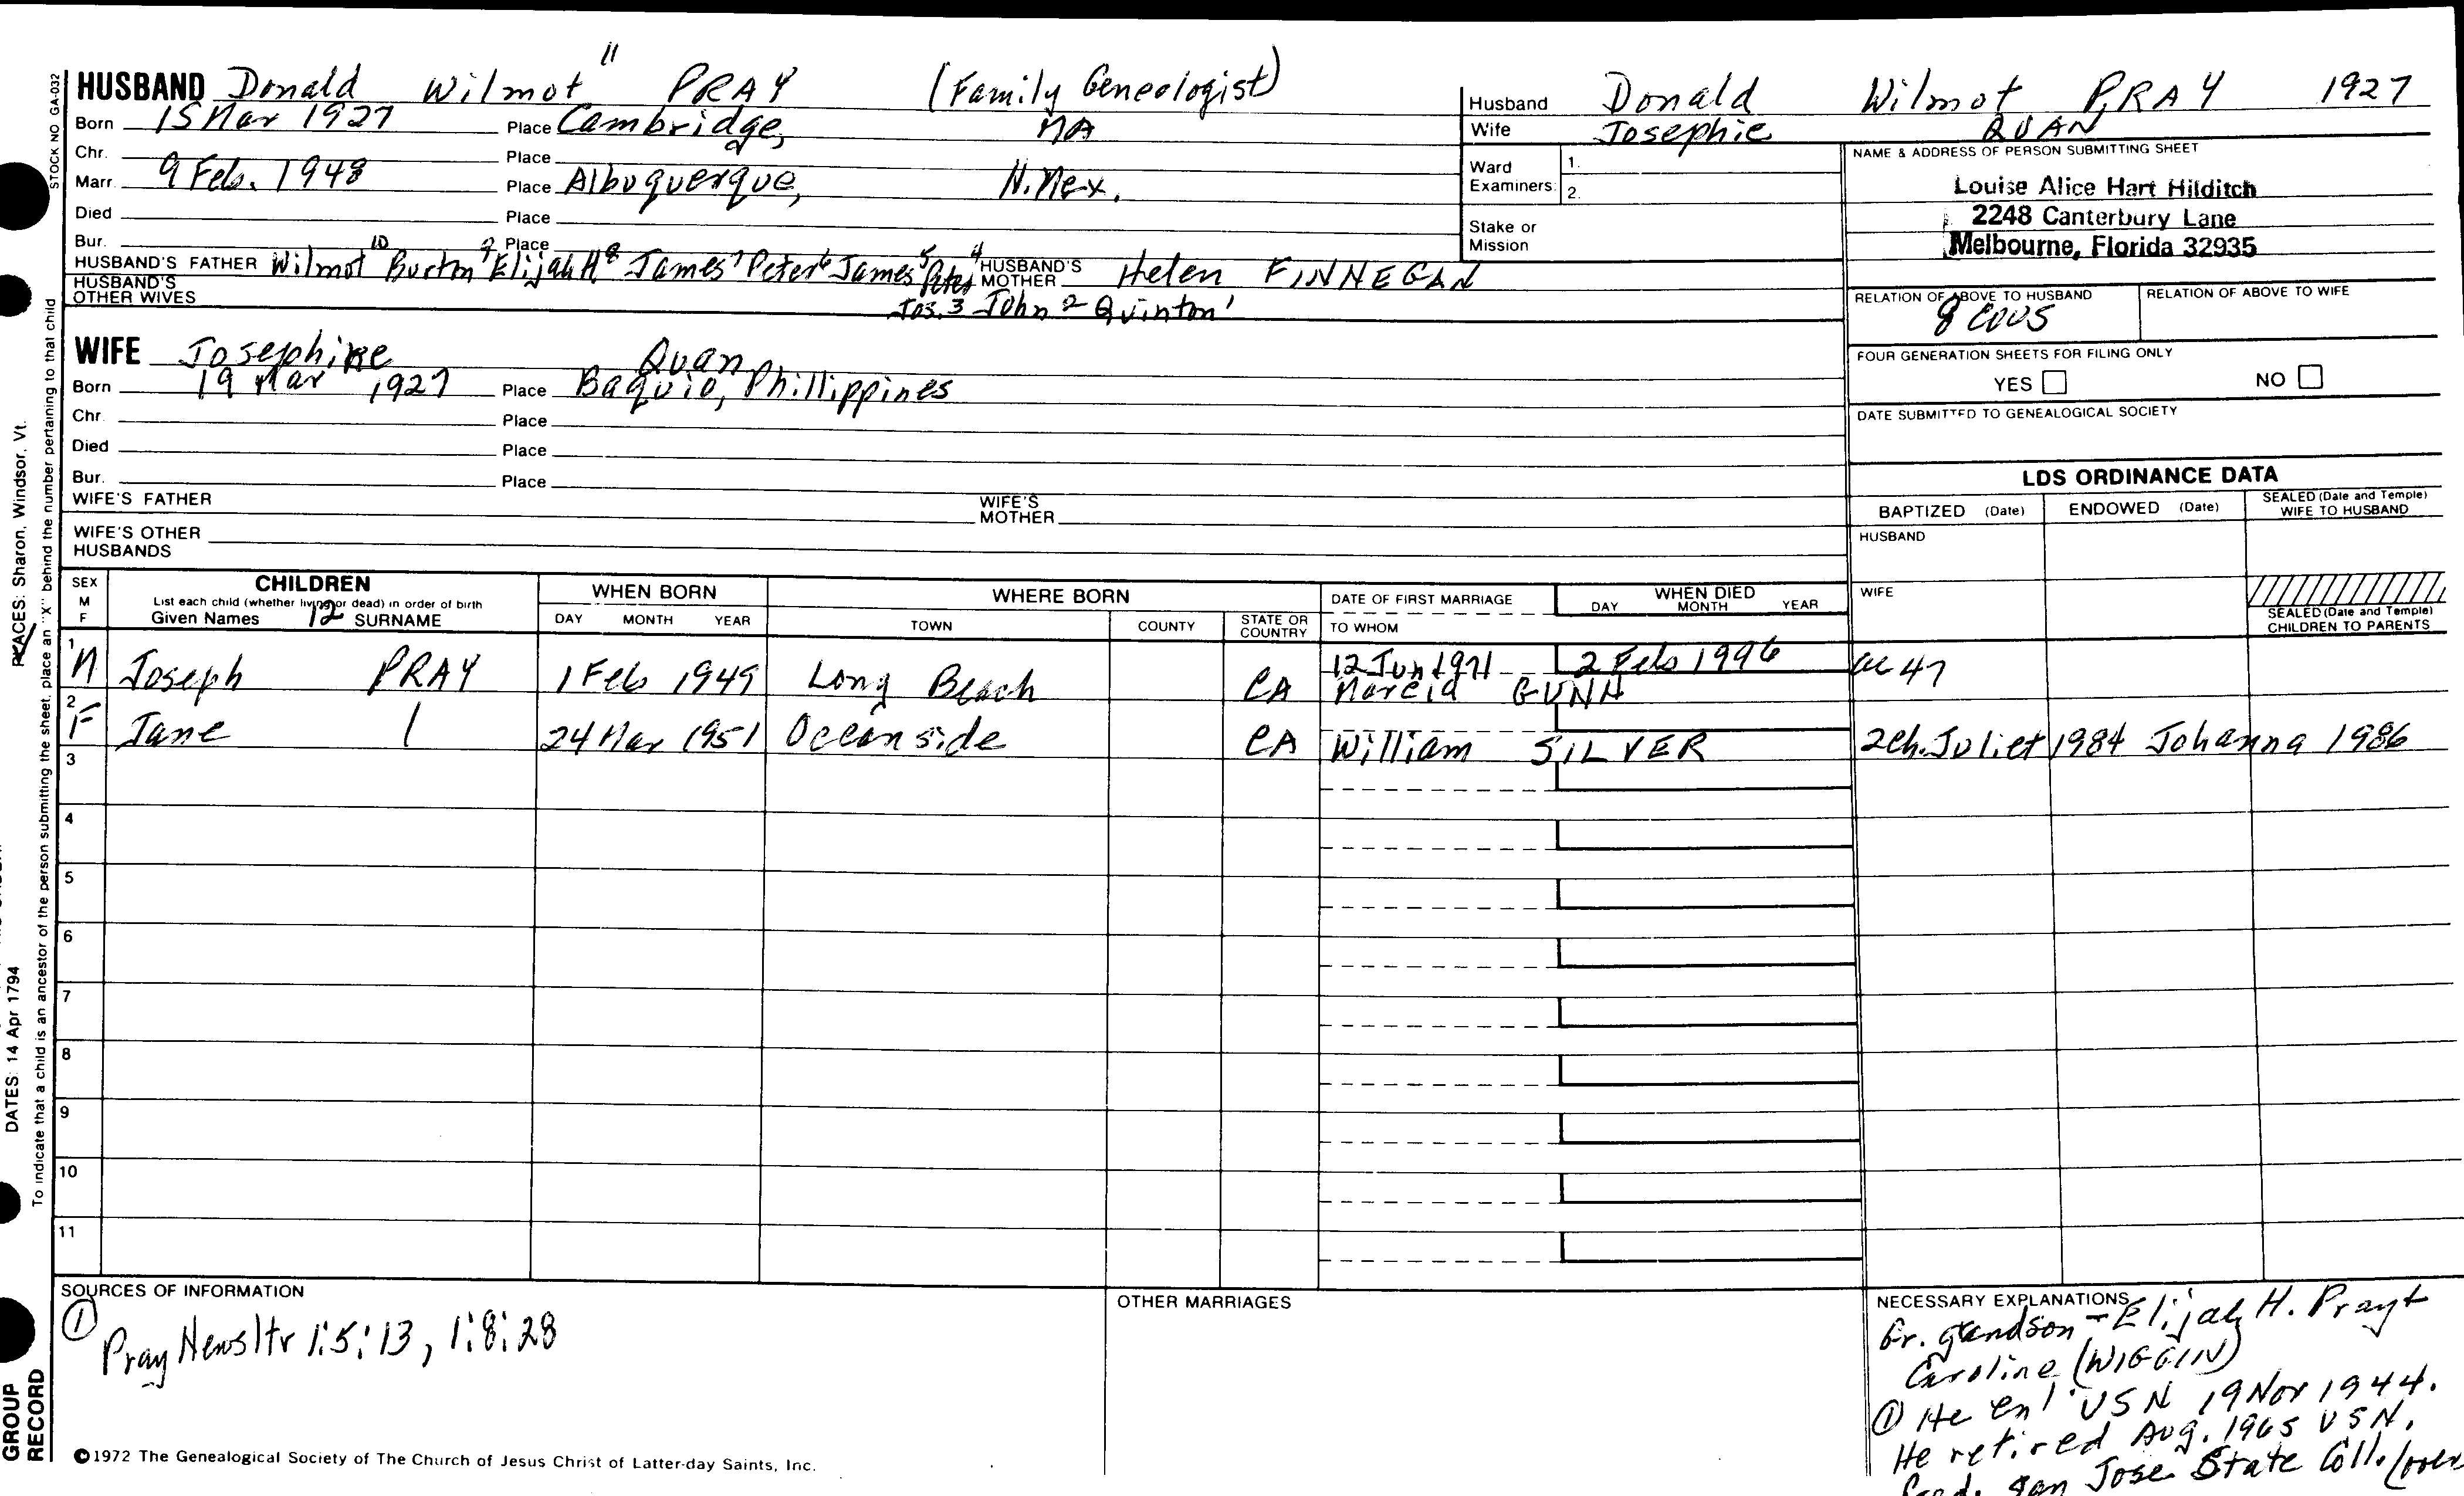 HUSBAND Donald Wilmot 11 PRAY (Family Geneologist)
Born 15 Mar 1927 Place Cambridge, MA
Chr. Place
Marr. 9 Feb. 1948 Place Albuquerque, N. Mex.
Died Place
Bur. Place
HUSBAND'S FATHER Wilmot 10 Burton 9 Elijah H 8 James 7 Peter 6 James 5 Peter 4 HUSBAND'S MOTHER Helen FINNEGAN
HUSBAND'S OTHER WIVES Jos. 3 John 2 Quinton 1
WIFE Josephine Quan
Born 19 Mar 1927 Place Baquio, Phillippines
Chr. Place
Died Place
Bur. Place
WIFE'S FATHER WIFE'S MOTHER
WIFE'S OTHER HUSBANDS
Husband Donald Wilmot PRAY 1927
Wife Josephie QUAN
Ward Examiners: 1. 2.
Stake or Mission
NAME & ADDRESS OF PERSON SUBMITTING SHEET
Louise Alice Hart Hilditch
2248 Canterbury Lane
Melbourne, Florida 32935
RELATION OF ABOVE TO HUSBAND RELATION OF ABOVE TO WIFE
8 cous
FOUR GENERATION SHEETS FOR FILING ONLY
YES NO
DATE SUBMITTED TO GENEALOGICAL SOCIETY
LDS ORDINANCE DATA
BAPTIZED (Date) ENDOWED (Date) SEALED (Date and Temple) WIFE TO HUSBAND
HUSBAND
WIFE
SEALED (Date and Temple) CHILDREN TO PARENTS
SEX M F
CHILDREN
List each child (whether living or dead) in order of birth
Given Names 12 SURNAME
WHEN BORN
DAY MONTH YEAR
WHERE BORN
TOWN COUNTY STATE OR COUNTRY
DATE OF FIRST MARRIAGE
TO WHOM
WHEN DIED
DAY MONTH YEAR
1 M Joseph PRAY 1 Feb 1949 Long Beach CA 12 Jun 1971 Marcia GUNN 2 Feb 1996 ae 47
2 F Jane 24 Mar 1951 Oceanside CA William SILVER 2ch. Juliet 1984 Johanna 1986
3
4
5
6
7
8
9
10
11
SOURCES OF INFORMATION
① Pray Newsltr 1:5:13, 1:8:28
OTHER MARRIAGES
NECESSARY EXPLANATIONS
Gr. grandson - Elijah H. Pray +
Caroline (WIGGIN)
① He enl USN 19 Nov 1944.
He retired Aug. 1965 USN.
Grad. San Jose State Coll. (over
©1972 The Genealogical Society of The Church of Jesus Christ of Latter-day Saints, Inc.
STOCK NO GA-032
To indicate that a child is an ancestor of the person submitting the sheet, place an "X" behind the number pertaining to that child
PLACES: Sharon, Windsor, Vt.
DATES: 14 Apr 1794
GROUP
RECORD